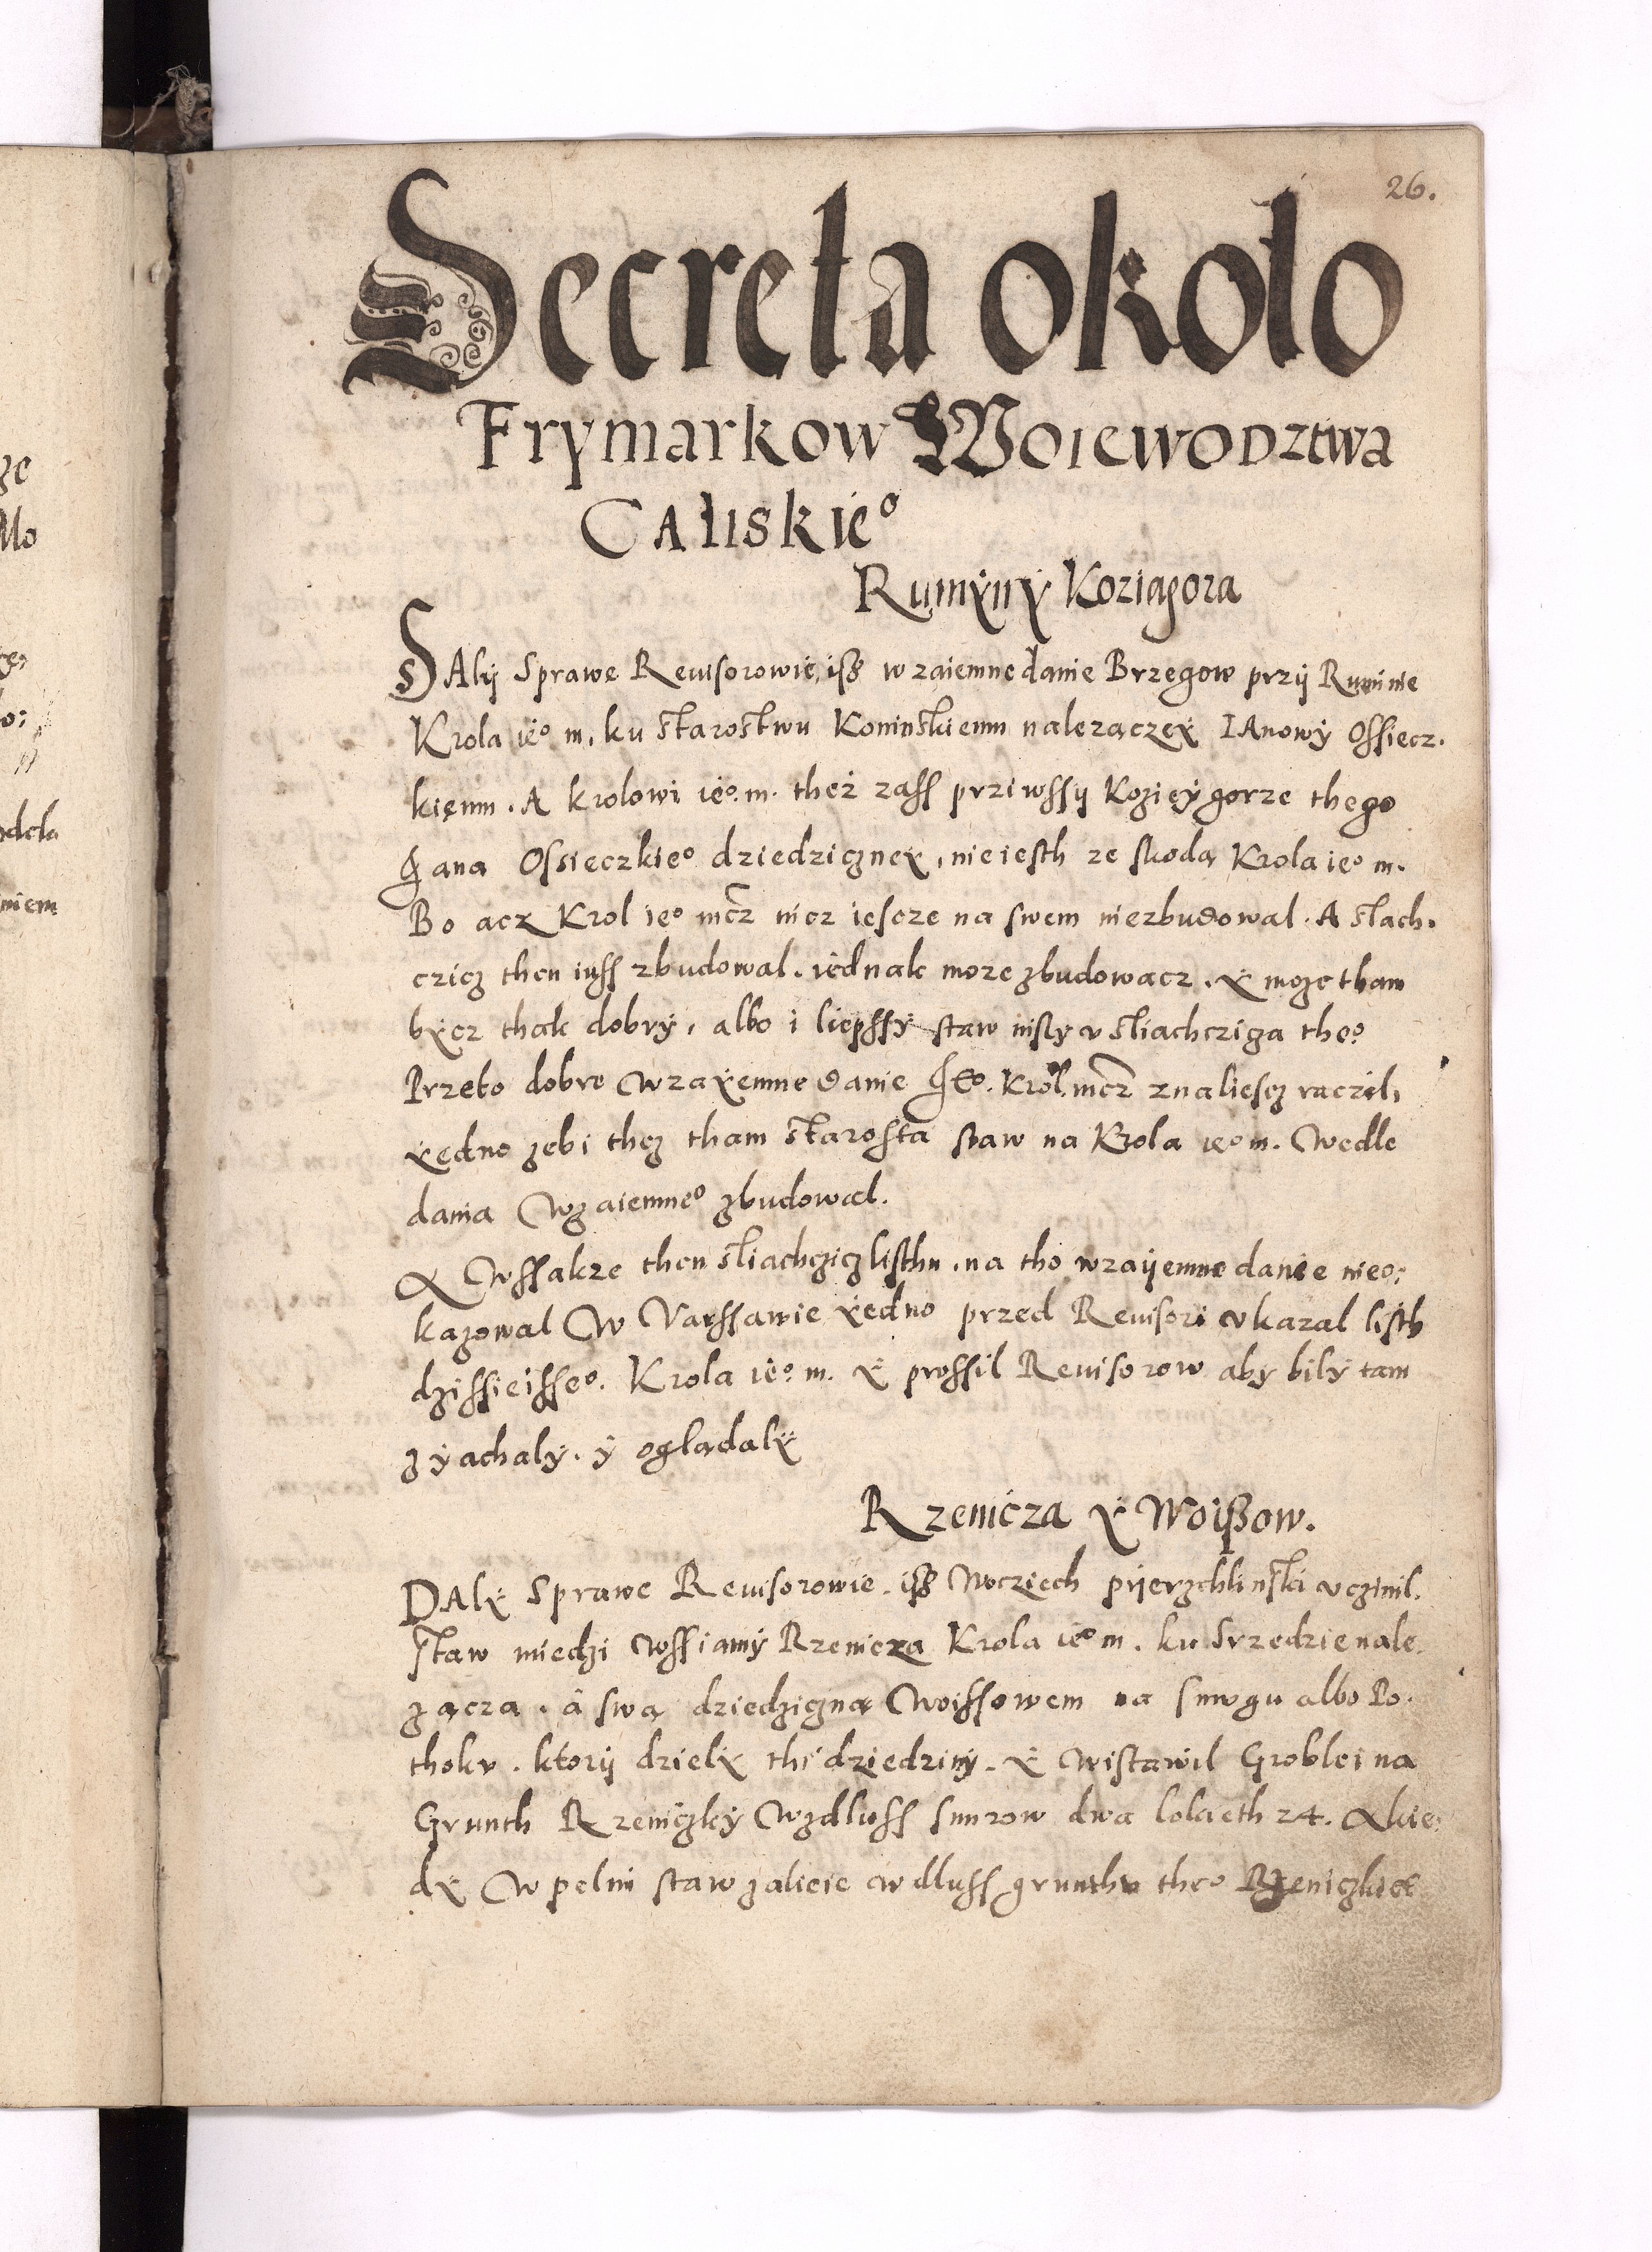 26.
Decreta około
Frymarkow Woiewodztwa
Caliskieº
Rumÿnÿ Koziagora
DAlij Sprawe Reuisorowie, isß w zaiemne danie Brzegow przij Ruminie
Krola ieº m. ku starostwu Koninskiemu nalezączeÿ IAnowÿ Ossiecz.
kięmu. A krolowi ieº. m. theż zass prziwssij Kozieÿ gorze thego
Jana Ossieczkieº dziedziczneÿ, nie iesth ze skodą Krola ieº m.
Bo acz Krol ieº mcz nicz iescze na swem niezbudowal. A slach.
czicz then iuss zbudowal. iednak moze zbudowacz. ÿ moze tham
bÿcz thak dobrÿ, albo i liepssÿ staw nisly v sliachcziza theº
Przeto dobre wzaÿemne danie Jeº. Krol. mcz znaliescz raczil,
ÿedno zebi thez tham starosta staw na Krola ieº m. wedle
dania wzaiemneº zbudowal.
A wssakze then sliachczicz listhu, na tho wzaijemne danie nieº;
kazowal w Varssawie ÿedno przed Reuisori vkazal listh
dzissieisseº. Krola ieº m. ÿ prossil Reuisorow aby bilÿ tam
zÿachaly. ÿ oglądalÿ
Rzenicza ÿ Woißow.
DAlÿ Sprawe Reuisorowie. isß Wocziech pijerzchlinski vczinil.
staw miedzi wssiamÿ Rzenicza Krola ieº m. ku Srzedzie nale.
zącza. â swą dziedziczną woissowem na smugu albo Po.
thoku. ktorij dzielÿ thi dziedzinÿ. ÿ wistawil Groblei na
Grunth Rzeniczkÿ wzdluss snurow dwa lokieth 24. A kie:
dÿ w pelni staw zalieie w dluss grunthu theº Rzeniczkieº